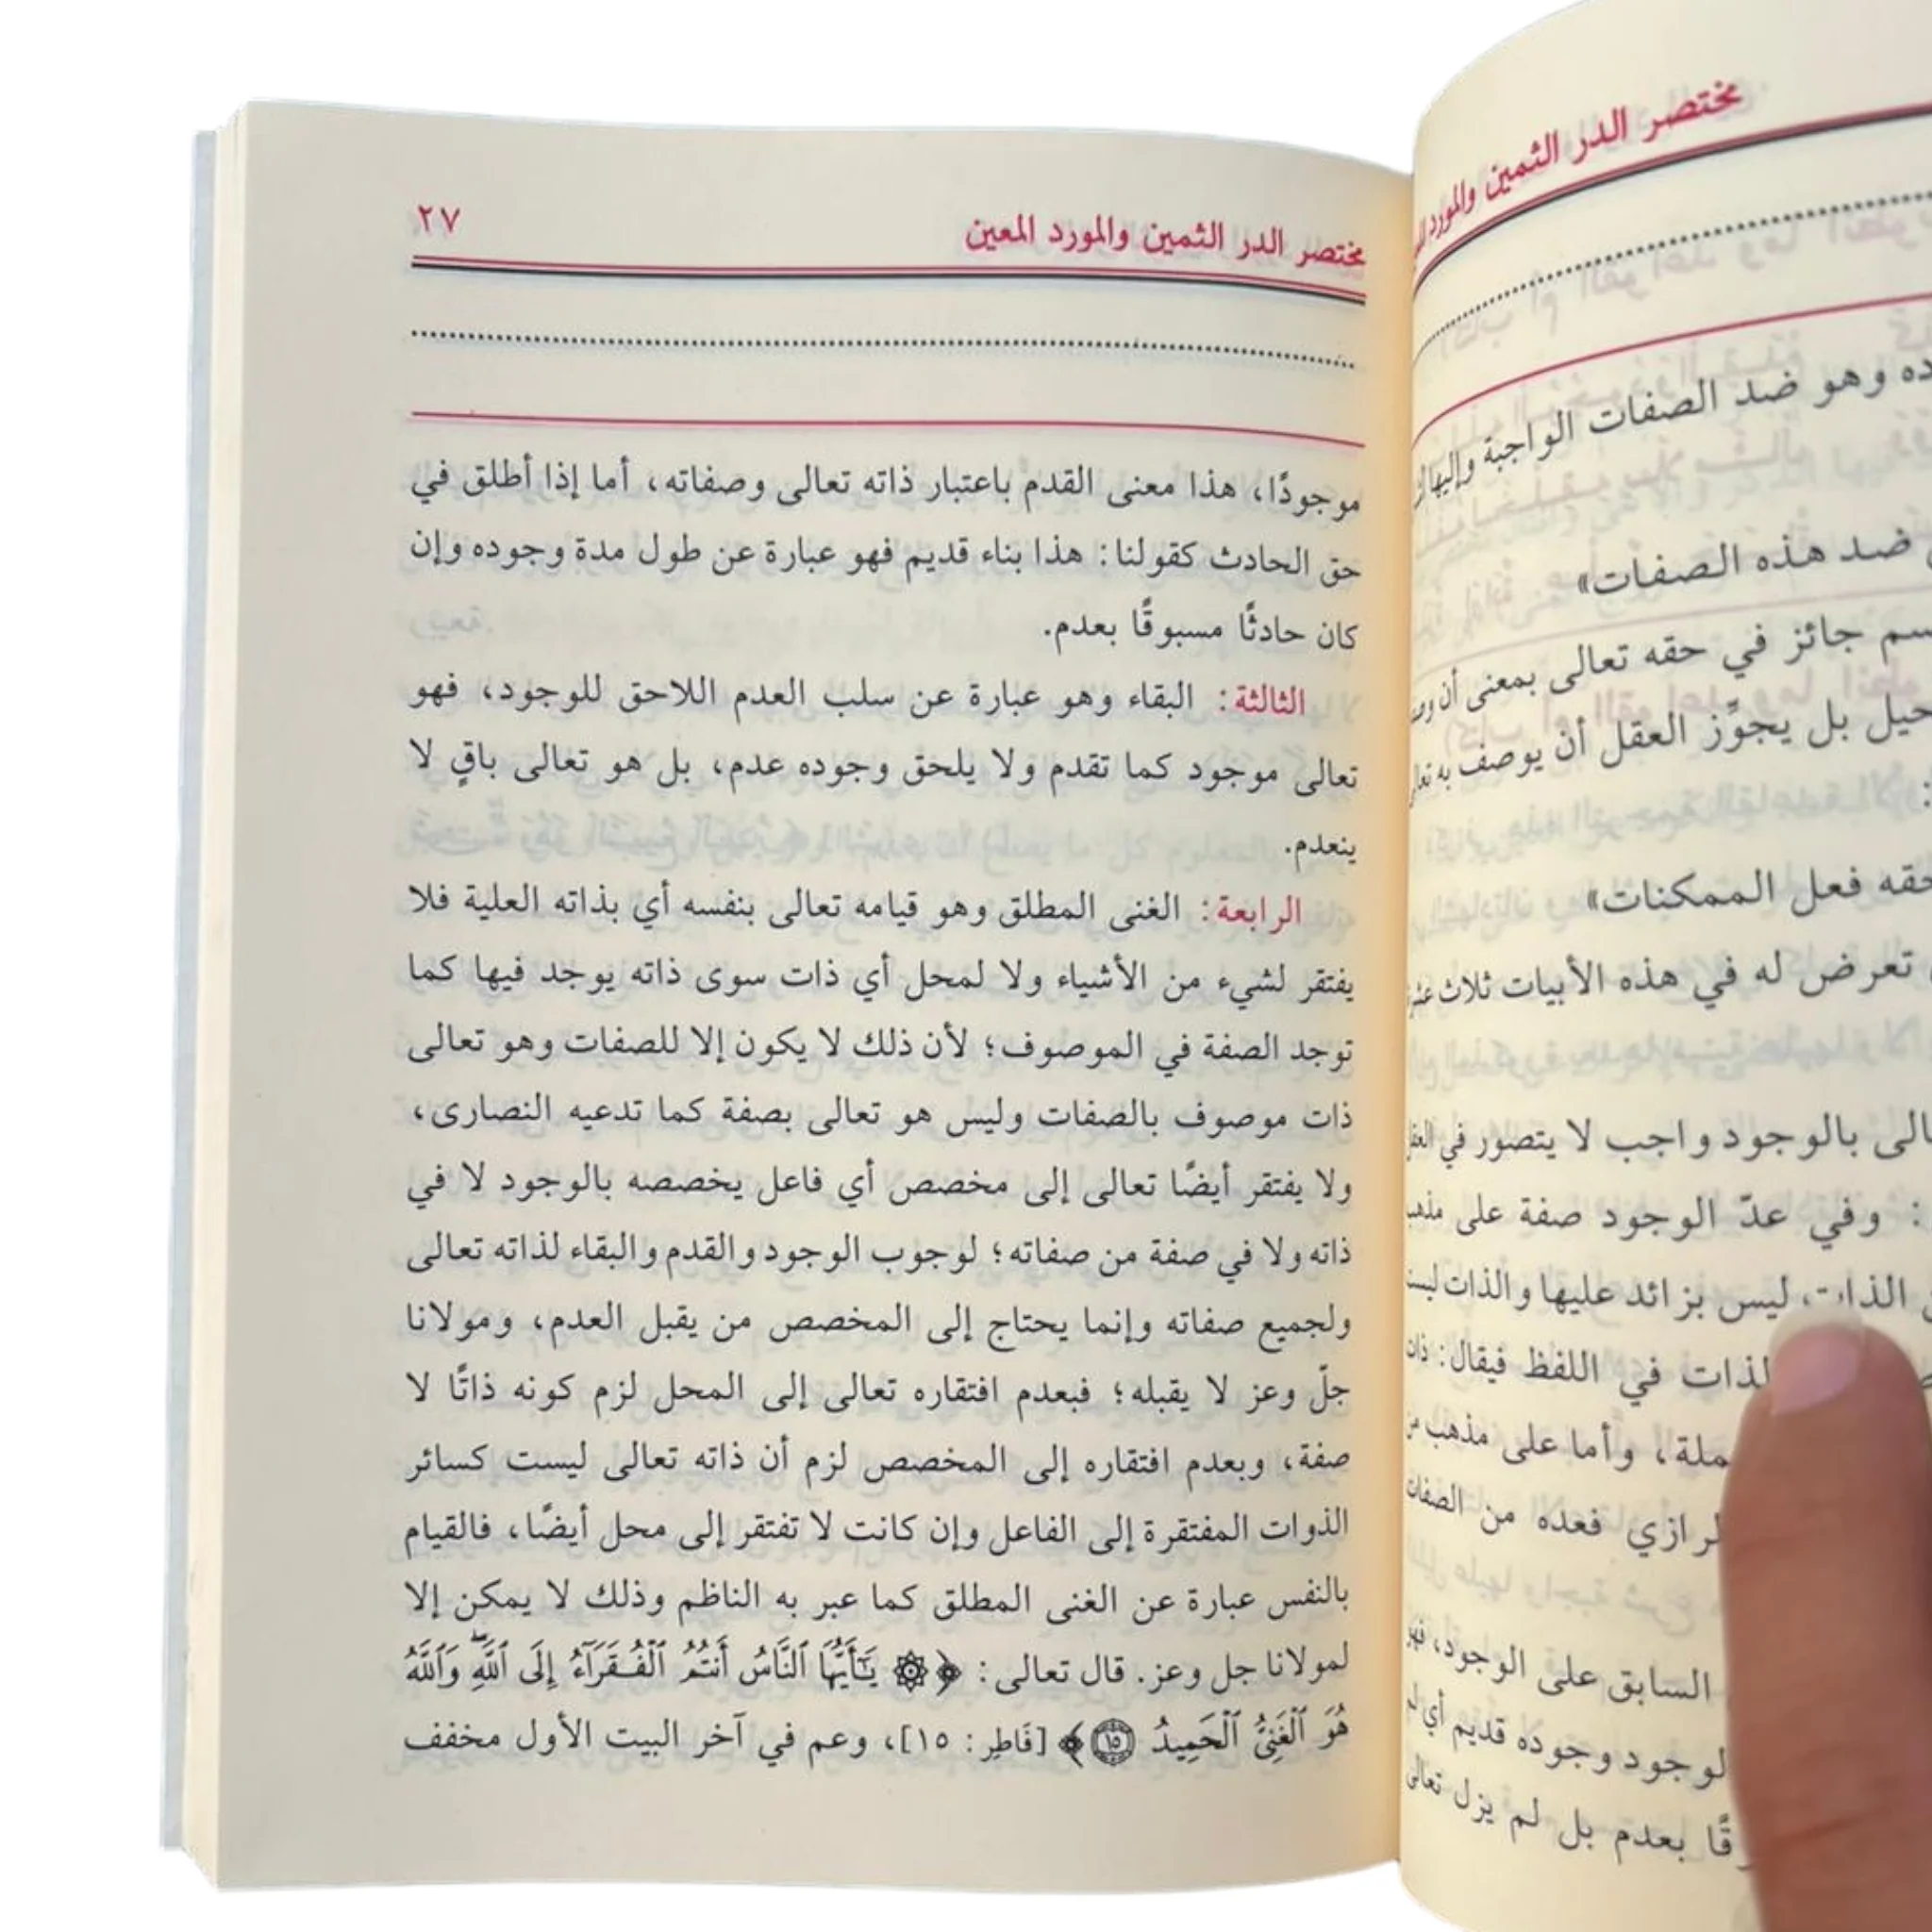 مختصر الدر الثمين والمورد
ده وهو ضد الصفات الواجبة وإليها
ضد هذه الصفات»
جائز في حقه تعالى بمعنى أن
بل يجوِّز العقل أن يوصف به
حقه فعل الممكنات»
تعرض له في هذه الأبيات ثلاث
بالوجود واجب لا يتصور في
: وفي عدّ الوجود صفة على
الذات ليس بزائد عليها والذات ليست
لذات في اللفظ فيقال: ذات
وأما على مذهب من
فعده من الصفات
السابق على الوجود، فهو
وجوده قديم أي
بعدم بل لم يزل تعالى
مختصر الدر الثمين والمورد المعين ٢٧
موجودًا، هذا معنى القدم باعتبار ذاته تعالى وصفاته، أما إذا أطلق في
حق الحادث كقولنا: هذا بناء قديم فهو عبارة عن طول مدة وجوده وإن
كان حادثًا مسبوقًا بعدم.
الثالثة: البقاء وهو عبارة عن سلب العدم اللاحق للوجود، فهو
تعالى موجود كما تقدم ولا يلحق وجوده عدم، بل هو تعالى باقٍ لا
ينعدم.
الرابعة: الغنى المطلق وهو قيامه تعالى بنفسه أي بذاته العلية فلا
يفتقر لشيء من الأشياء ولا لمحل أي ذات سوى ذاته يوجد فيها كما
توجد الصفة في الموصوف؛ لأن ذلك لا يكون إلا للصفات وهو تعالى
ذات موصوف بالصفات وليس هو تعالى بصفة كما تدعيه النصارى،
ولا يفتقر أيضًا تعالى إلى مخصص أي فاعل يخصصه بالوجود لا في
ذاته ولا في صفة من صفاته؛ لوجوب الوجود والقدم والبقاء لذاته تعالى
ولجميع صفاته وإنما يحتاج إلى المخصص من يقبل العدم، ومولانا
جلّ وعز لا يقبله؛ فبعدم افتقاره تعالى إلى المحل لزم كونه ذاتًا لا
صفة، وبعدم افتقاره إلى المخصص لزم أن ذاته تعالى ليست كسائر
الذوات المفتقرة إلى الفاعل وإن كانت لا تفتقر إلى محل أيضًا، فالقيام
بالنفس عبارة عن الغنى المطلق كما عبر به الناظم وذلك لا يمكن إلا
لمولانا جل وعز. قال تعالى: ﴿۞ يَـٰٓأَيُّهَا ٱلنَّاسُ أَنتُمُ ٱلْفُقَرَآءُ إِلَى ٱللَّهِ ۖ وَٱللَّهُ
هُوَ ٱلْغَنِىُّ ٱلْحَمِيدُ ۝١٥﴾ [فَاطِر: ١٥]، وعم في آخر البيت الأول مخفف